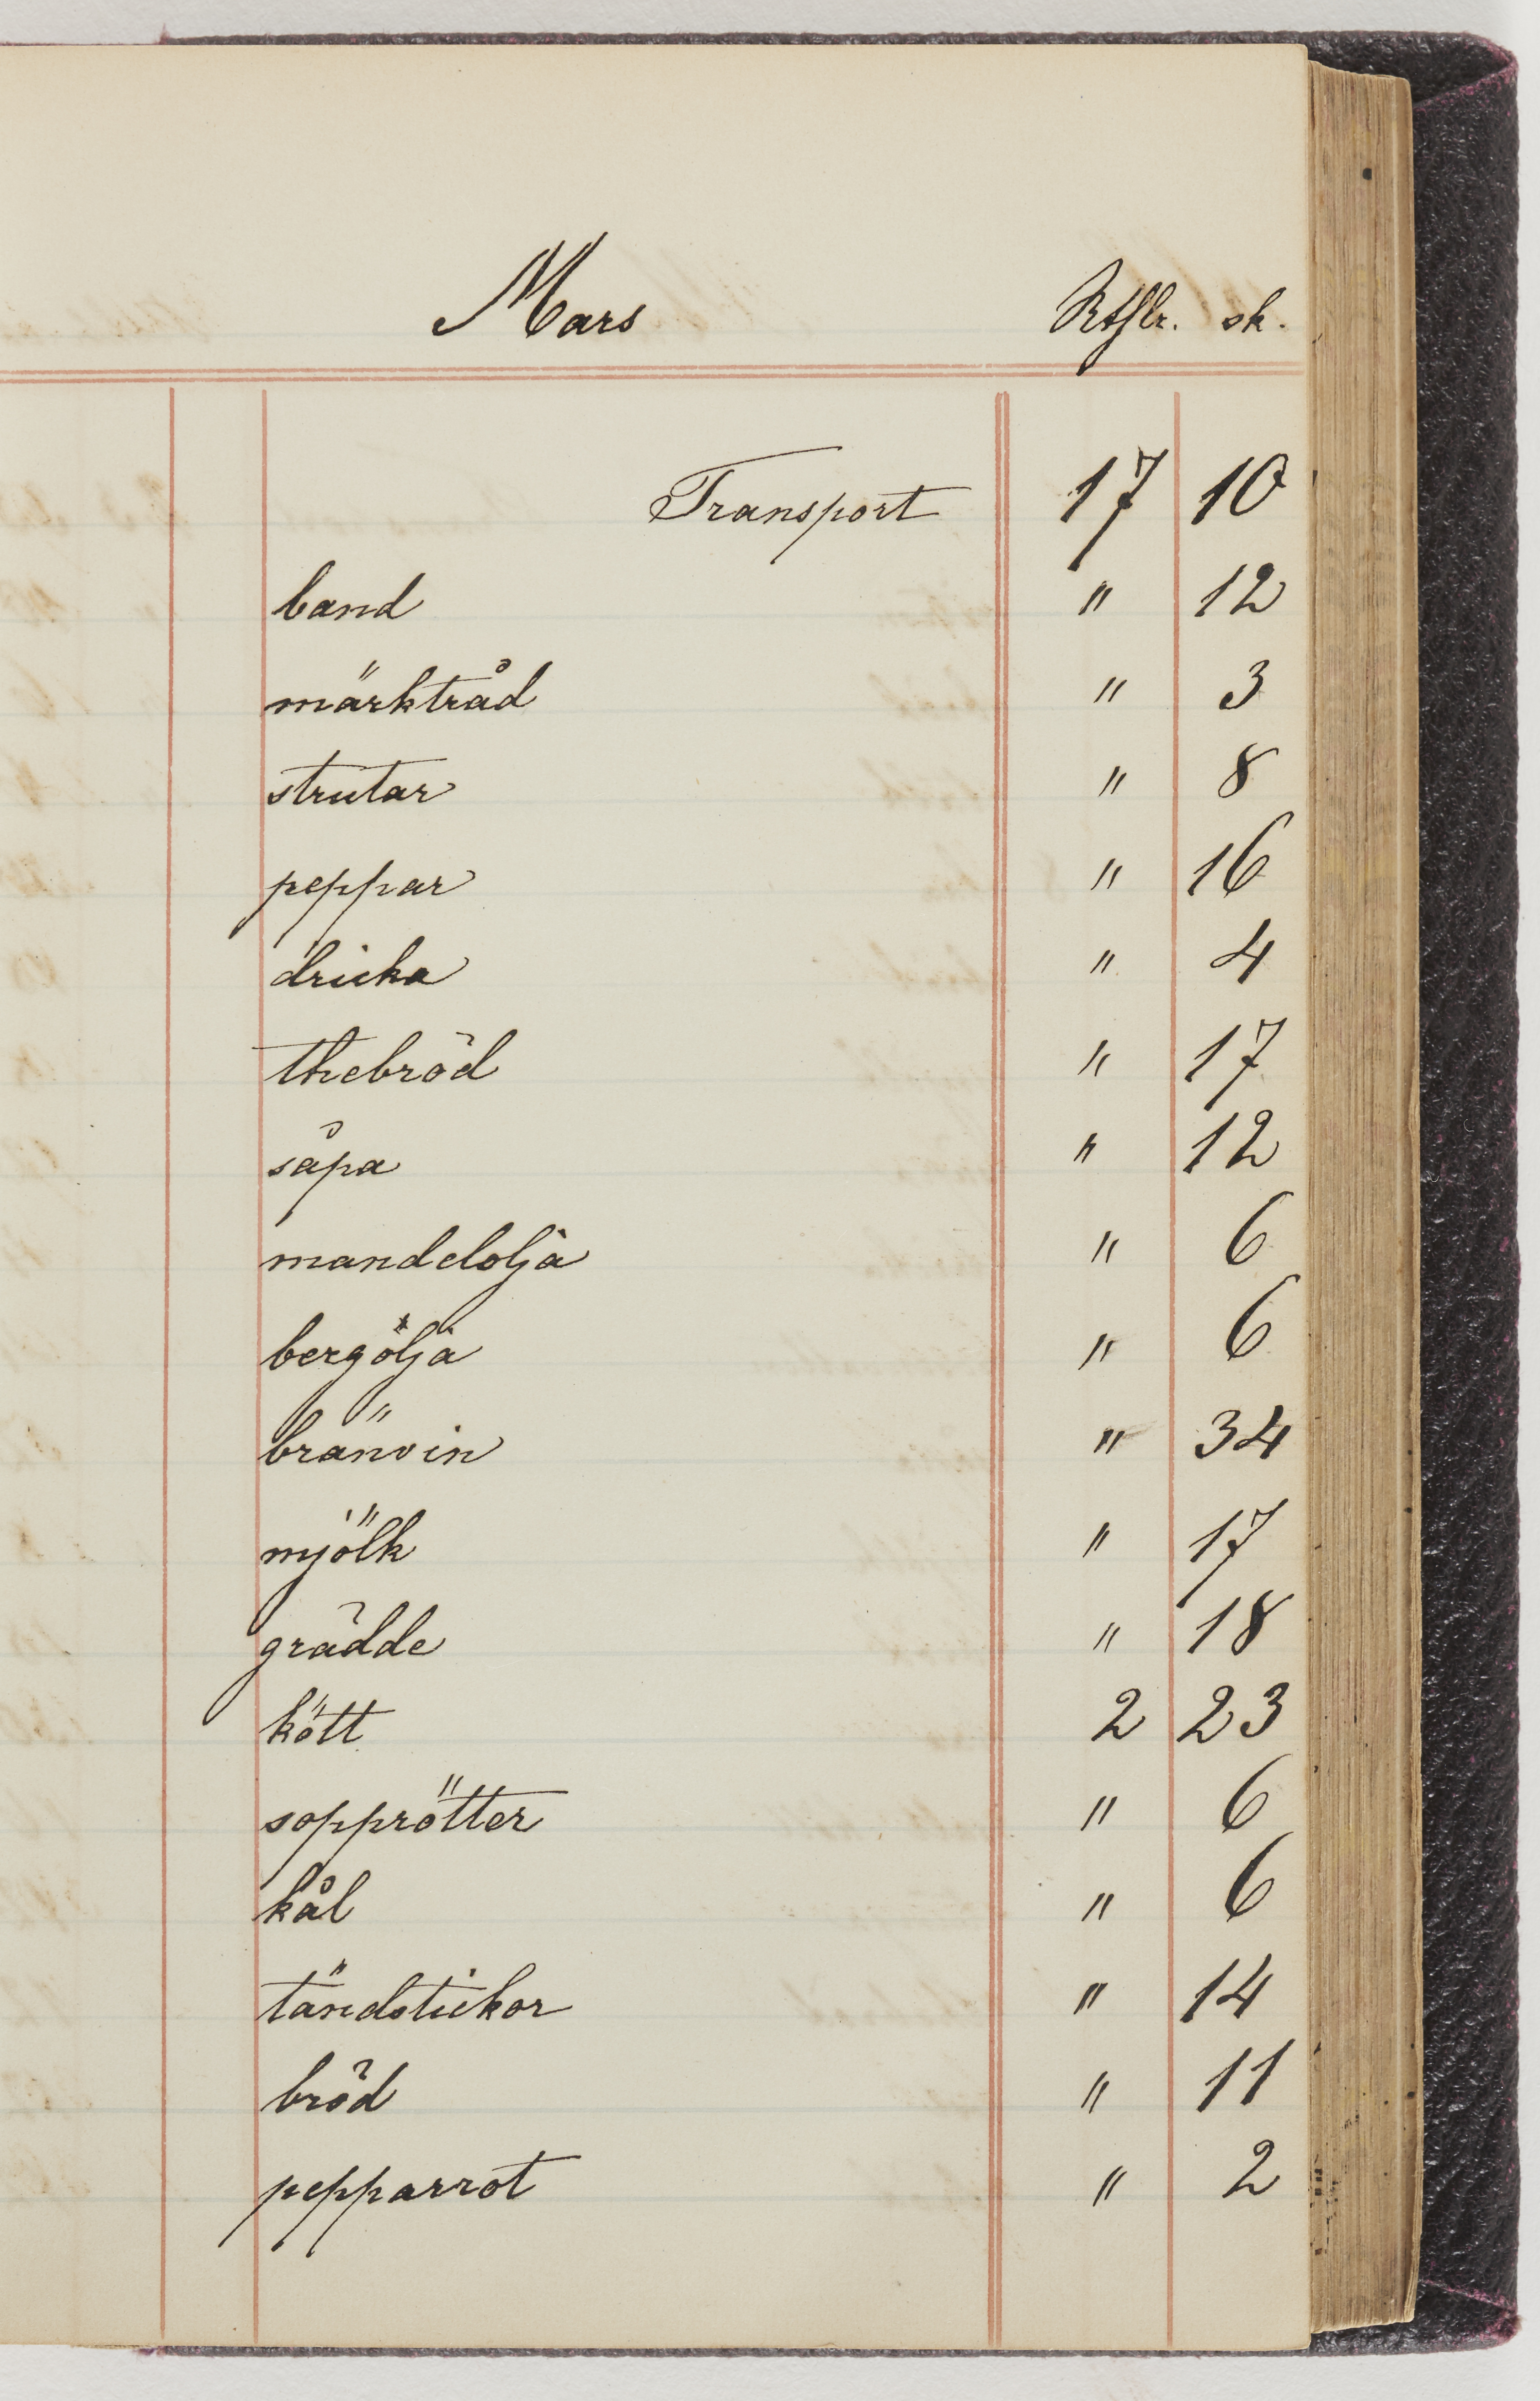 Mars Rthlr. sk.
Transport 17 10
band " 12
märktråd " 3
strutar " 8
peppar " 16
dricka " 4
thebröd " 17
såpa " 12
mandelolja " 6
bergölja " 6
bränvin " 34
mjölk " 17
grädde " 18
kött 2 23
sopprötter " 6
kål " 6
tändstickor " 14
bröd " 11
pepparrot " 2